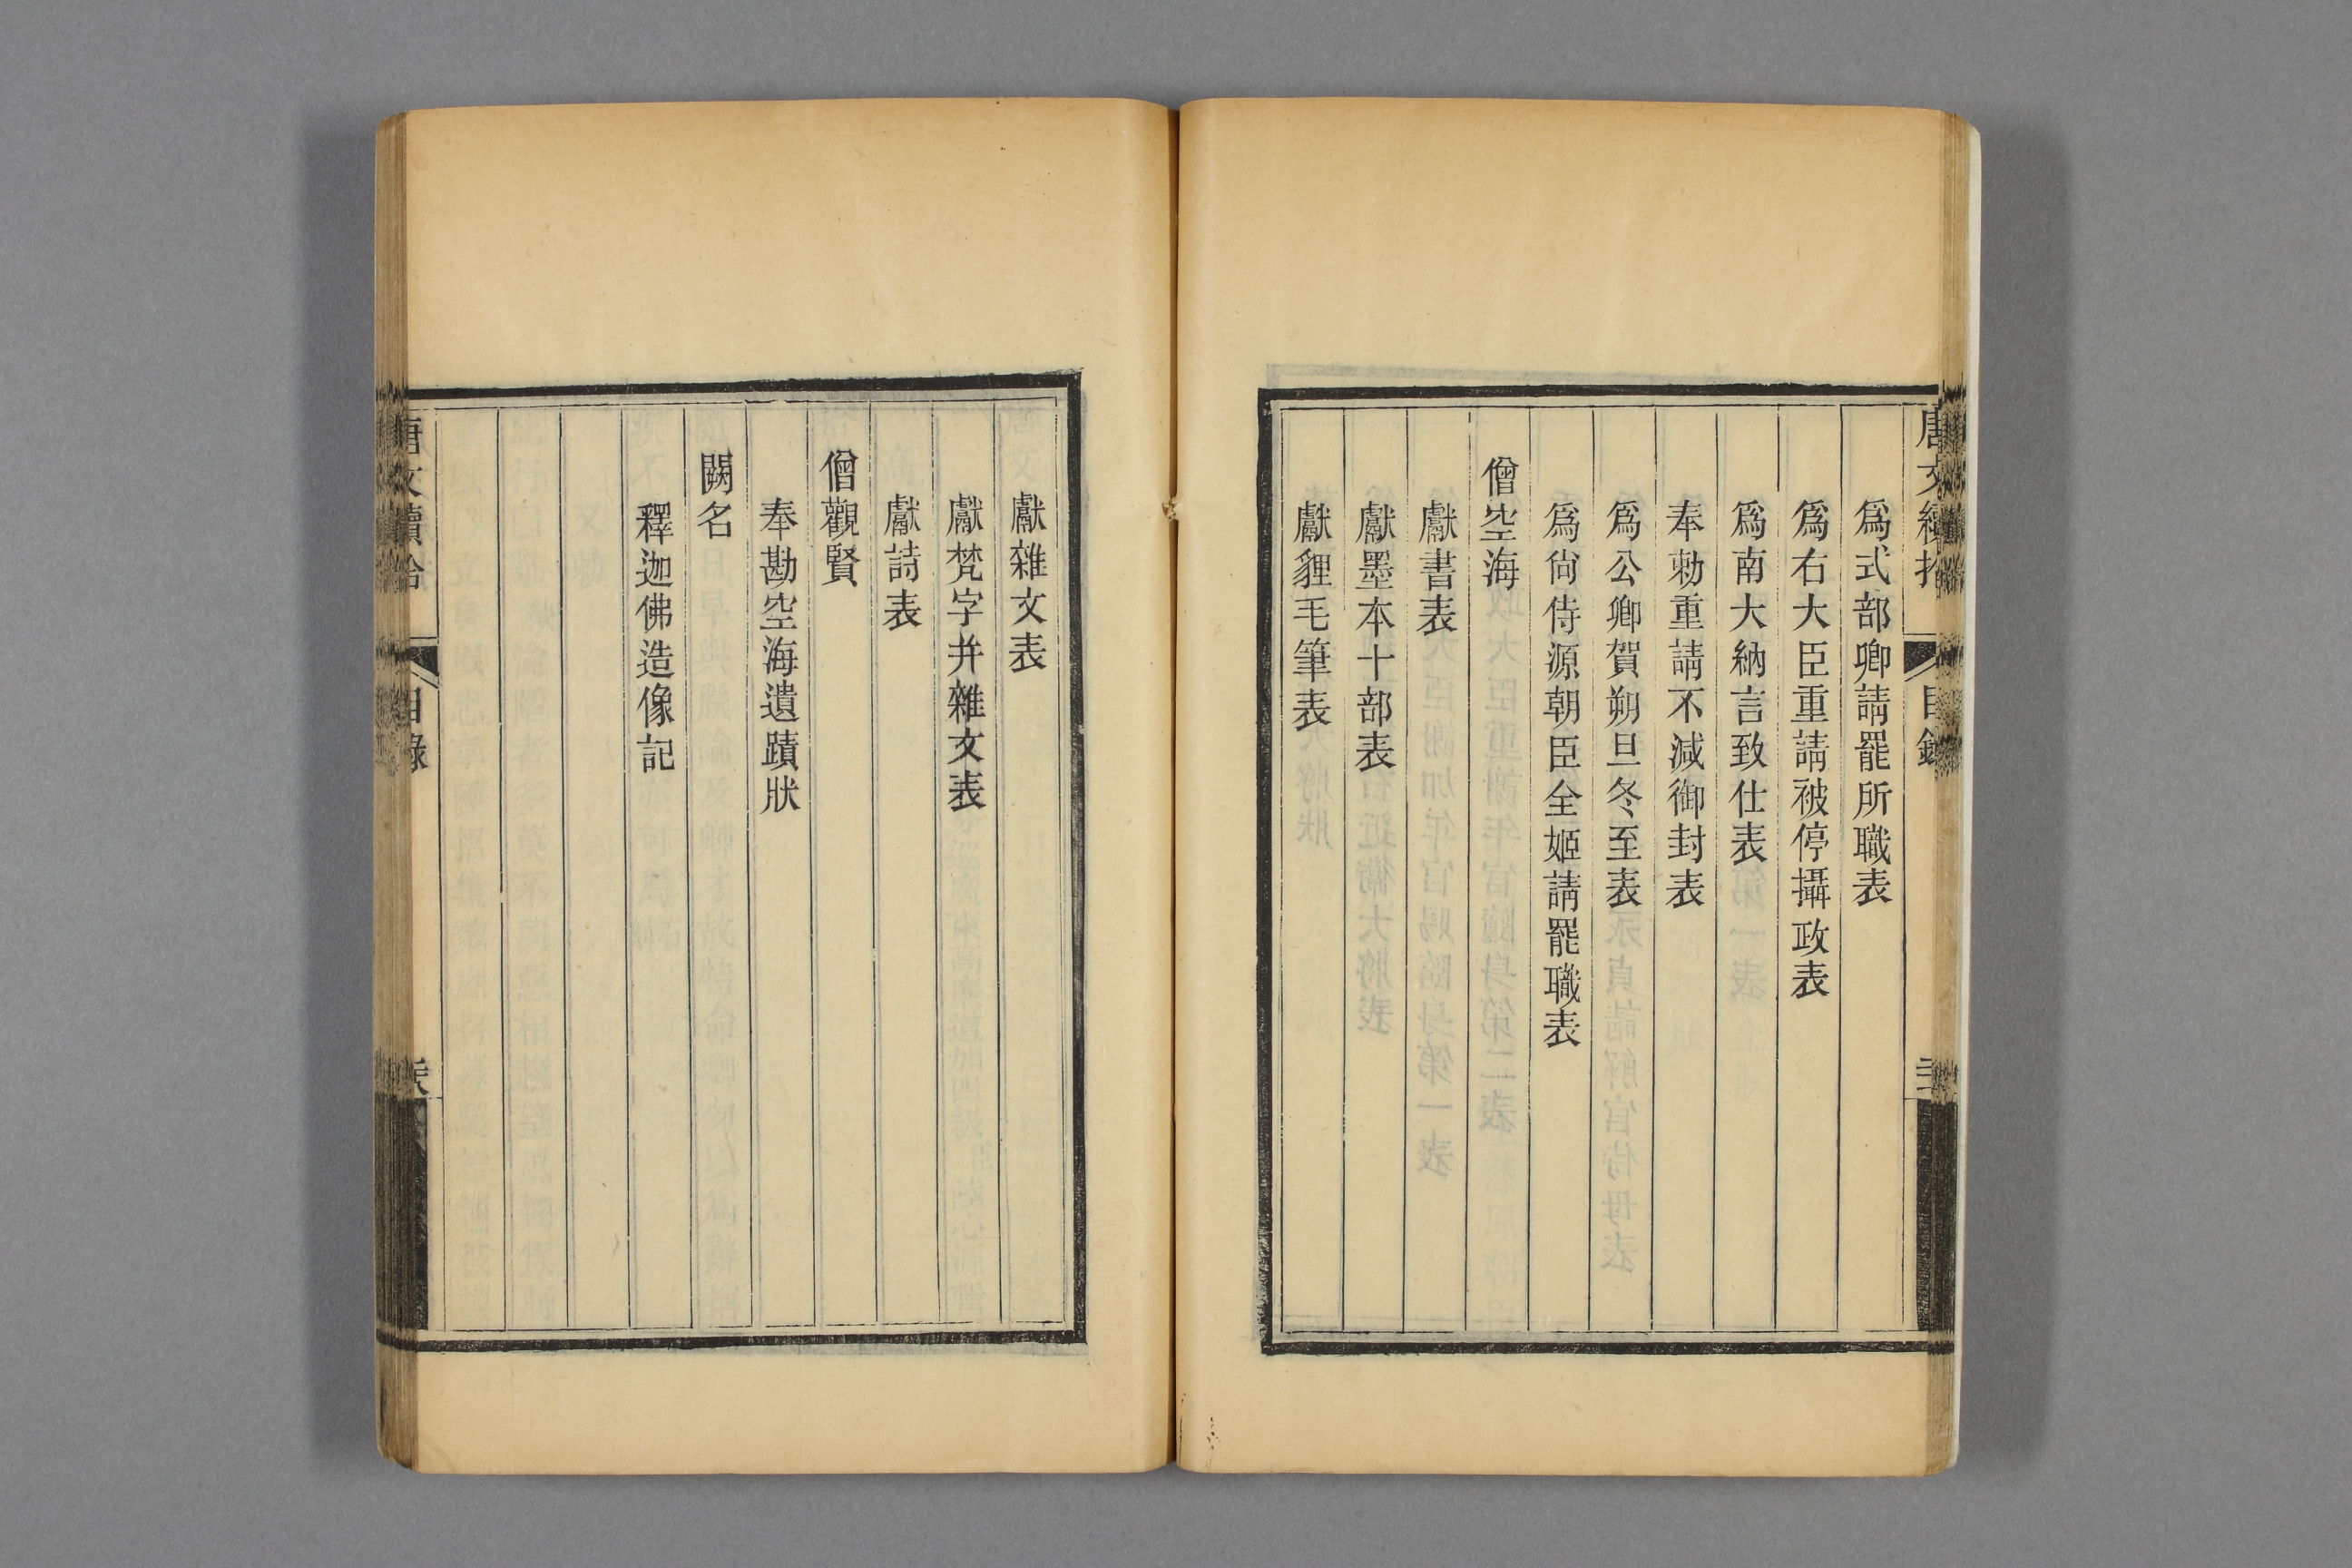 爲式部卿請罷所職表
爲右大臣重請被停攝政表
爲南大納言致仕表
奉勅重請不減御封表
爲公卿賀朔旦冬至表
爲尙侍源朝臣全姬請罷職表
僧空海
獻書表
獻墨本十部表
獻貍毛筆表
獻雜文表
獻梵字并雜文表
獻詩表
僧觀賢
奉勘空海遺蹟狀
闕名
釋迦佛造像記
唐文續拾
目錄